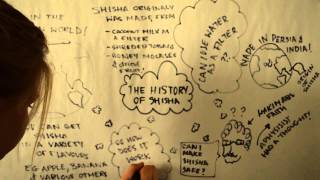 IN THE
WORLD!
SHISHA ORIGINALLY
WAS MADE FROM
- COCONUT MILK IN
A FILTER
- SHREDED TOBACCO
- HONEY MOLASES
& DRIED
FRUIT
CAN I USE WATER
AS A FILTER
??
MADE IN PERSIA &
INDIA!
ORIGIN
OF
SHISHA
THE HISTORY
OF SHISHA
CAN GET
SHISHA
IN A VARIETY
OF FLAVOURS
E.G APPLE, BANANA
& VARIOUS OTHERS
SO HOW
DOES IT
WORK
CAN I
MAKE
SHISHA
SAFE?
HAKIM ABUL
FATH
HAD A THOUGHT!